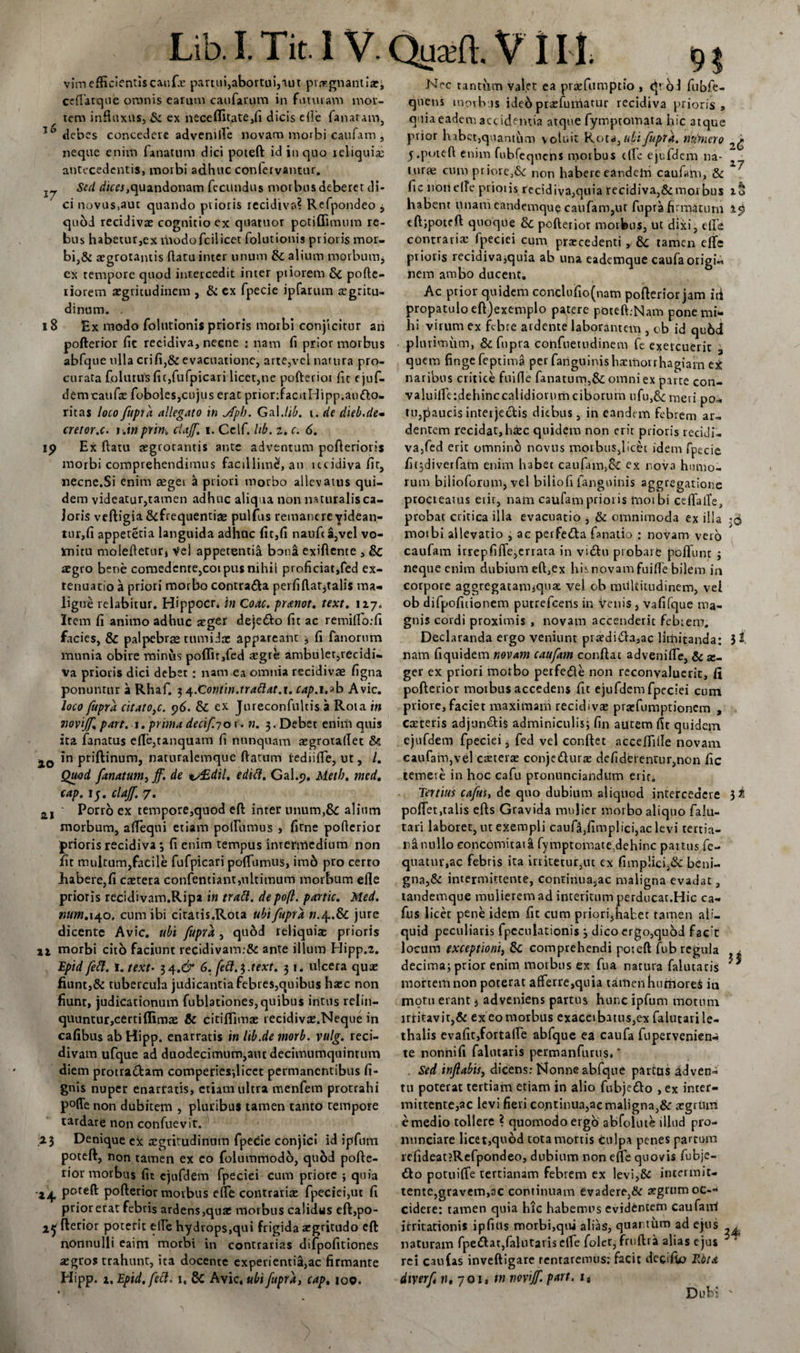 Lib. I. Tit. IV. Quæst. VIII. 93
vim efficientis causæ partui, abortui, aut prægnantiæ;
cessatque omnis earum causarum in futuram mor-
tem influxus, & ex necessitate, si dicis esse sanatam,
16 debes concedere advenisse novam morbi causam,
neque enim sanatum dici potest id in quo reliquiæ
antecedentis, morbi adhuc conservantur.
17 Sed dices, quandonam secundus morbus deberet di-
ci novus, aut quando prioris recidiva? Respondeo,
quòd recidivæ cognitio ex quatuor potissimum re-
bus habetur, ex modo scilicet solutionis prioris mor-
bi, & ægrotantis statu inter unum & alium morbum,
ex tempore quod intercedit inter priorem & poste-
riorem ægritudinem, & ex specie ipsarum ægritu-
dinum.
18 Ex modo solutionis prioris morbi conjicitur an
posterior sit recidiva, necne: nam si prior morbus
absque ulla crisi, & evacuatione, arte, vel natura pro-
curata solutus sit, suspicari licet, ne posterior sit ejus-
dem causæ soboles, cujus erat prior: facit Hipp. aucto-
ritas loco suprà allegato in Aph. Gal. lib. 1. de dieb. de-
cretor. c. 1. in prin. class. 1. Cels. lib. 2. c. 6.
19 Ex statu ægrotantis ante adventum posterioris
morbi comprehendimus facillimè, an recidiva sit,
necne. Si enim æger à priori morbo allevatus qui-
dem videatur, tamen adhuc aliqua non naturalis ca-
loris vestigia & frequentiæ pulsus remanere videan-
tur, si appetetia languida adhuc sit, si nausea, vel vo-
mitu molestetur, vel appetentiâ bonâ existente, &
ægro bene comedente, corpus nihil proficiat, sed ex-
tenuatio à priori morbo contracta persistat, talis ma-
lignè relabitur. Hippocr. in Coac. prænot. text. 127.
Item si animo adhuc æger dejecto sit ac remisso: si
facies, & palpebræ tumidæ appareant, si sanorum
munia obire minùs possit, sed ægrè ambulet, recidi-
va prioris dici debet: nam ea omnia recidivæ signa
ponuntur à Rhas. 34. Contin. tractat. 1. cap. 1. ab Avic.
loco suprà citato, c. 96. & ex Jureconsultis à Rota in
noviss. part. 1. prima decis. 701. n. 3. Debet enim quis
ita sanatus esse, tanquam si nunquam ægrotasset &
20 in pristinum, naturalemque statum rediisse, ut, l.
Quod sanatum, ff. de Ædil. edict. Gal. 9. Meth. med.
cap. 15. class. 7.
21 Porrò ex tempore, quod est inter unum, & alium
morbum, assequi etiam possumus, sitne posterior
prioris recidiva; si enim tempus intermedium non
sit multum, facilè suspicari possumus, imò pro certo
habere, si cætera consentiant, ultimum morbum esse
prioris recidivam. Ripa in tract. de pest. partic. Med.
num. 140. cum ibi citatis. Rota ubi suprà n. 4. & jure
dicente Avic. ubi suprà, quòd reliquiæ prioris
22 morbi citò faciunt recidivam: & ante illum Hipp. 2.
Epid sect. 1. text. 34. & 6. sect. 3. text. 31. ulcera quæ
fiunt, & tubercula judicantia febres, quibus hæc non
fiunt, judicationum sublationes, quibus intus relin-
quuntur, certissimæ & citissimæ recidivæ. Neque in
casibus ab Hipp. enarratis in lib. de morb. vulg. reci-
divam usque ad duodecimum, aut decimumquintum
diem protractam comperies; licet permanentibus si-
gnis nuper enarratis, etiam ultra mensem protrahi
posse non dubitem, pluribus tamen tanto tempore
tardare non consuevit.
23 Denique ex ægritudinum specie conjici id ipsum
potest, non tamen ex eo solummodò, quòd poste-
rior morbus sit ejusdem speciei cum priore; quia
24 potest posterior morbus esse contrariæ speciei, ut si
prior erat febris ardens, quæ morbus calidus est, po-
25 sterior poterit esse hydrops, qui frigida ægritudo est
nonnulli eaim morbi in contrarias dispositiones
ægros trahunt, ita docente experientiâ, ac firmante
Hipp. 2. Epid. sect. 1. & Avic. ubi suprà, cap. 100.
Nec tantùm valet ea præsumptio, quòd subse-
quens morbus ideò præsumatur recidiva prioris,
quia eadem accidentia atque symptomata hîc atque
prior habet, quantùm voluit Rota, ubi suprà. numero 26
5. potest enim subsequens morbus esse ejusdem na-
turæ cum priore, & non habere eandem causam, & 27
sic non esse prioris recidiva, quia recidiva, & morbus 28
habent unam eandemque causam, ut suprà firmatum 29
est; potest quoque & posterior morbus, ut dixi, esse
contrariæ speciei cum præcedenti, & tamen esse
prioris recidiva; quia ab una eademque causa origi-
nem ambo ducent.
Ac prior quidem conclusio (nam posterior jam in
propatulo est) exemplo patere potest: Nam pone mi-
hi virum ex febre ardente laborantem, ob id quòd
plurimùm, & supra consuetudinem se exercuerit,
quem finge septimâ per sanguinis hæmorrhagiam ex
naribus criticè fuisse sanatum, & omni ex parte con-
valuisse: dehinc calidiorum ciborum usu, & meri po-
tu, paucis interjectis diebus, in eandem febrem ar-
dentem recidat, hæc quidem non erit prioris recidi-
va, sed erit omninò novus morbus, licèt idem specie
sit; diversam enim habet causam, & ex nova humo-
rum biliosorum, vel biliosi sanguinis aggregatione
procreatus erit, nam causam prioris morbi cessasse,
probat critica illa evacuatio, & omnimoda ex illa 30
morbi allevatio, ac perfecta sanatio: novam verò
causam irrepsisse, errata in victu probare possunt;
neque enim dubium est, ex his novam fuisse bilem in
corpore aggregatam, quæ vel ob multitudinem, vel
ob dispositionem putrescens in venis, vasisque ma-
gnis cordi proximis, novam accenderit febrem.
Declaranda ergo veniunt prædicta, ac limitanda: 31
nam siquidem novam causam constat advenisse, & æ-
ger ex priori morbo perfectè non reconvaluerit, si
posterior morbus accedens sit ejusdem speciei cum
priore, faciet maximam recidivæ præsumptionem,
cæteris adjunctis adminiculis; sin autem sit quidem
ejusdem speciei, sed vel constet accessisse novam
causam, vel cæteræ conjecturæ desiderentur, non sic
temerè in hoc casu pronunciandum erit.
Tertius casus, de quo dubium aliquod intercedere 32
posset, talis est: Gravida mulier morbo aliquo salu-
tari laboret, ut exempli causâ, simplici, ac levi tertia-
nâ nullo concomitatâ symptomate, dehinc partus se-
quatur, ac febris ita irritetur, ut ex simplici, & beni-
gna, & intermittente, continua, ac maligna evadat,
tandemque mulierem ad interitum perducat. Hic ca-
sus licèt penè idem sit cum priori, habet tamen ali-
quid peculiaris speculationis; dico ergo, quòd facit
locum exceptioni, & comprehendi potest sub regula 33
decima; prior enim morbus ex sua natura salutaris
mortem non poterat afferre, quia tamen humores in
motu erant, adveniens partus hunc ipsum motum
irritavit, & ex eo morbus exacerbatus, ex salutari le-
thalis evasit, fortasse absque ea causa supervenien-
te nonnisi salutaris permansurus.
Sed instabis, dicens: Nonne absque partus adven-
tu poterat tertiam etiam in alio subjecto, ex inter-
mittente, ac levi fieri continua, ac maligna, & ægrum
è medio tollere? quomodo ergò absolutè illud pro-
nunciare licet, quòd tota mortis culpa penes partum
resideat? Respondeo, dubium non esse quovis subje-
cto potuisse tertianam febrem ex levi, & intermit-
tente, gravem, ac continuam evadere, & ægrum oc-
cidere: tamen quia hîc habemus evidentem causam
irritationis ipsius morbi, qui aliàs, quantùm ad ejus 34
naturam spectat, salutaris esse solet, frustrà alias ejus
rei causas investigare tentaremus: facit decisio Rotæ
divers. n. 701. in noviss. part. 1.
Dubi